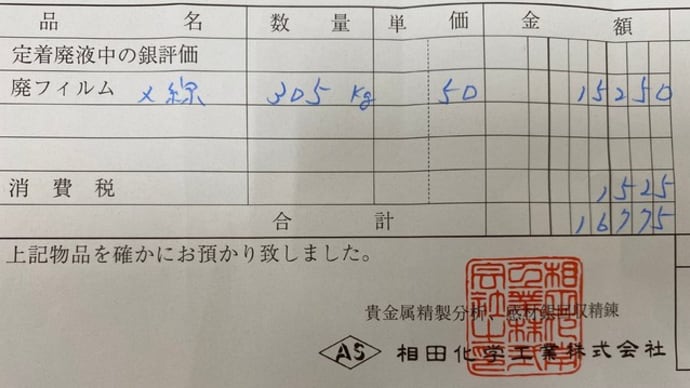 品名 数量 単価 金額
定着廃液中の銀評価
廃フィルム X線 305 Kg 50 15250
消費税 1525
合計 16775
上記物品を確かにお預かり致しました。
貴金属精製分析、感材銀回収精錬
AS 相田化学工業株式会社
相田化学工業株式会社之印